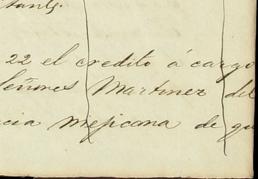 tante.
22 el credito á cargo
Señores Martinez del
cia mejicana de qu